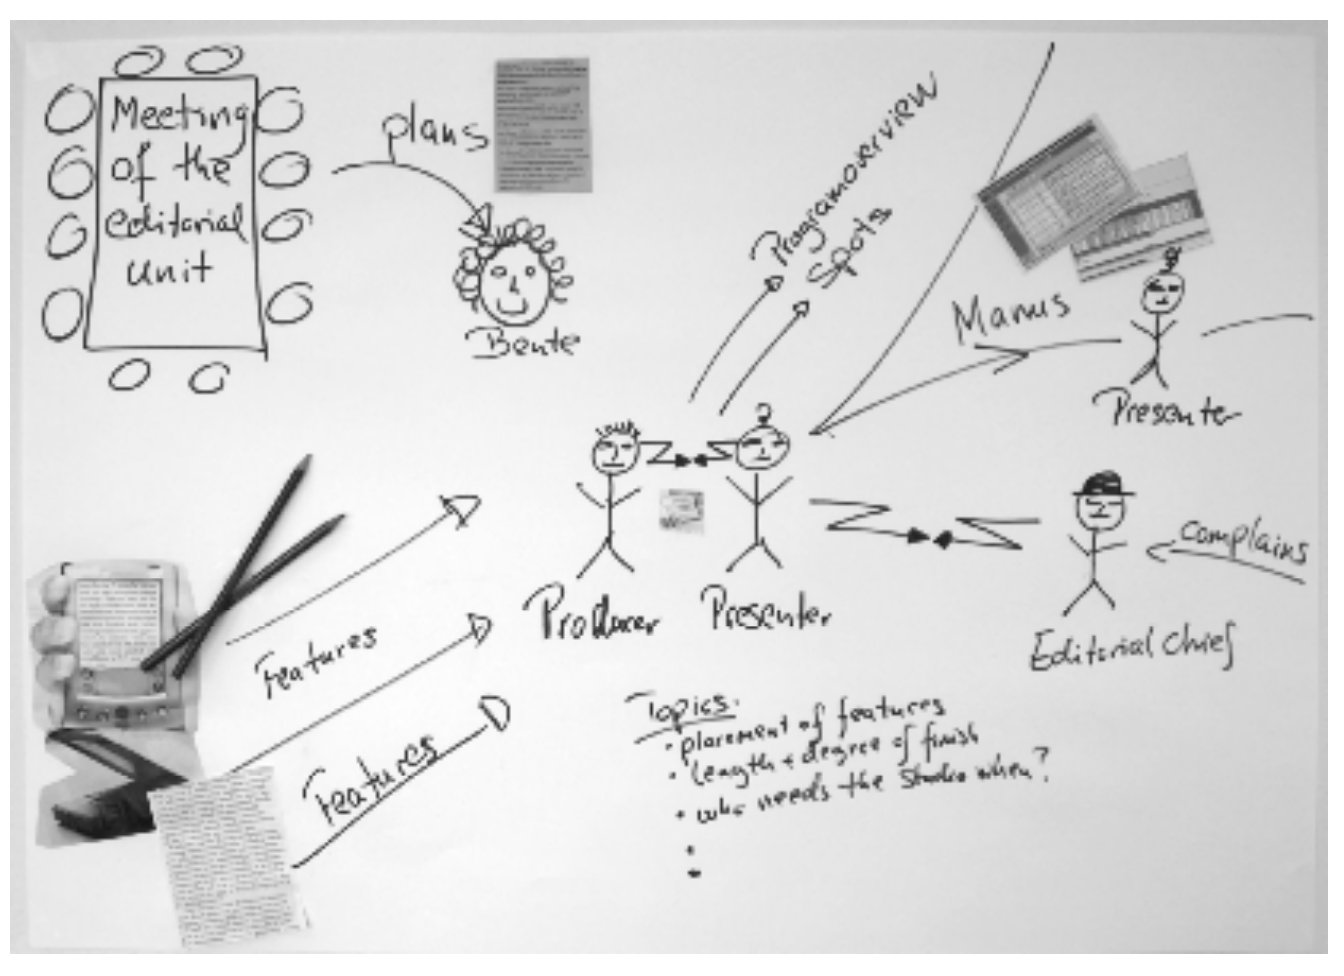 Meeting
of the
editorial
unit
plans
Bente
Programoverview
Spots
Manus
Presenter
Producer
Presenter
complains
Editorial Chief
Features
Features
Topics:
• placement of features
• length + degree of finish
• who needs the Studio when?
•
•